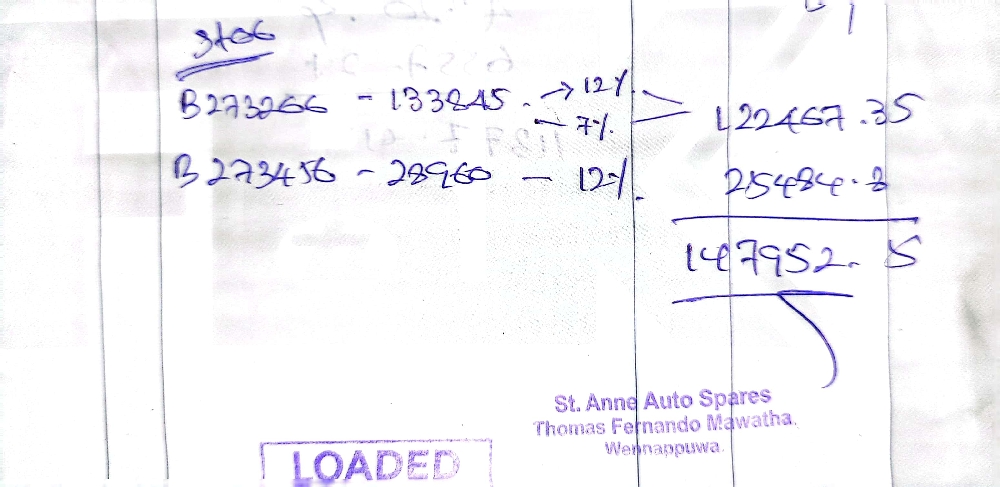 B273266 - 133845. → 12%
- 7%.
122467.35
B273456 - 28960 - 12%.
25484.8
147952.5
St. Anne Auto Spares
Thomas Fernando Mawatha,
Wennappuwa.
LOADED